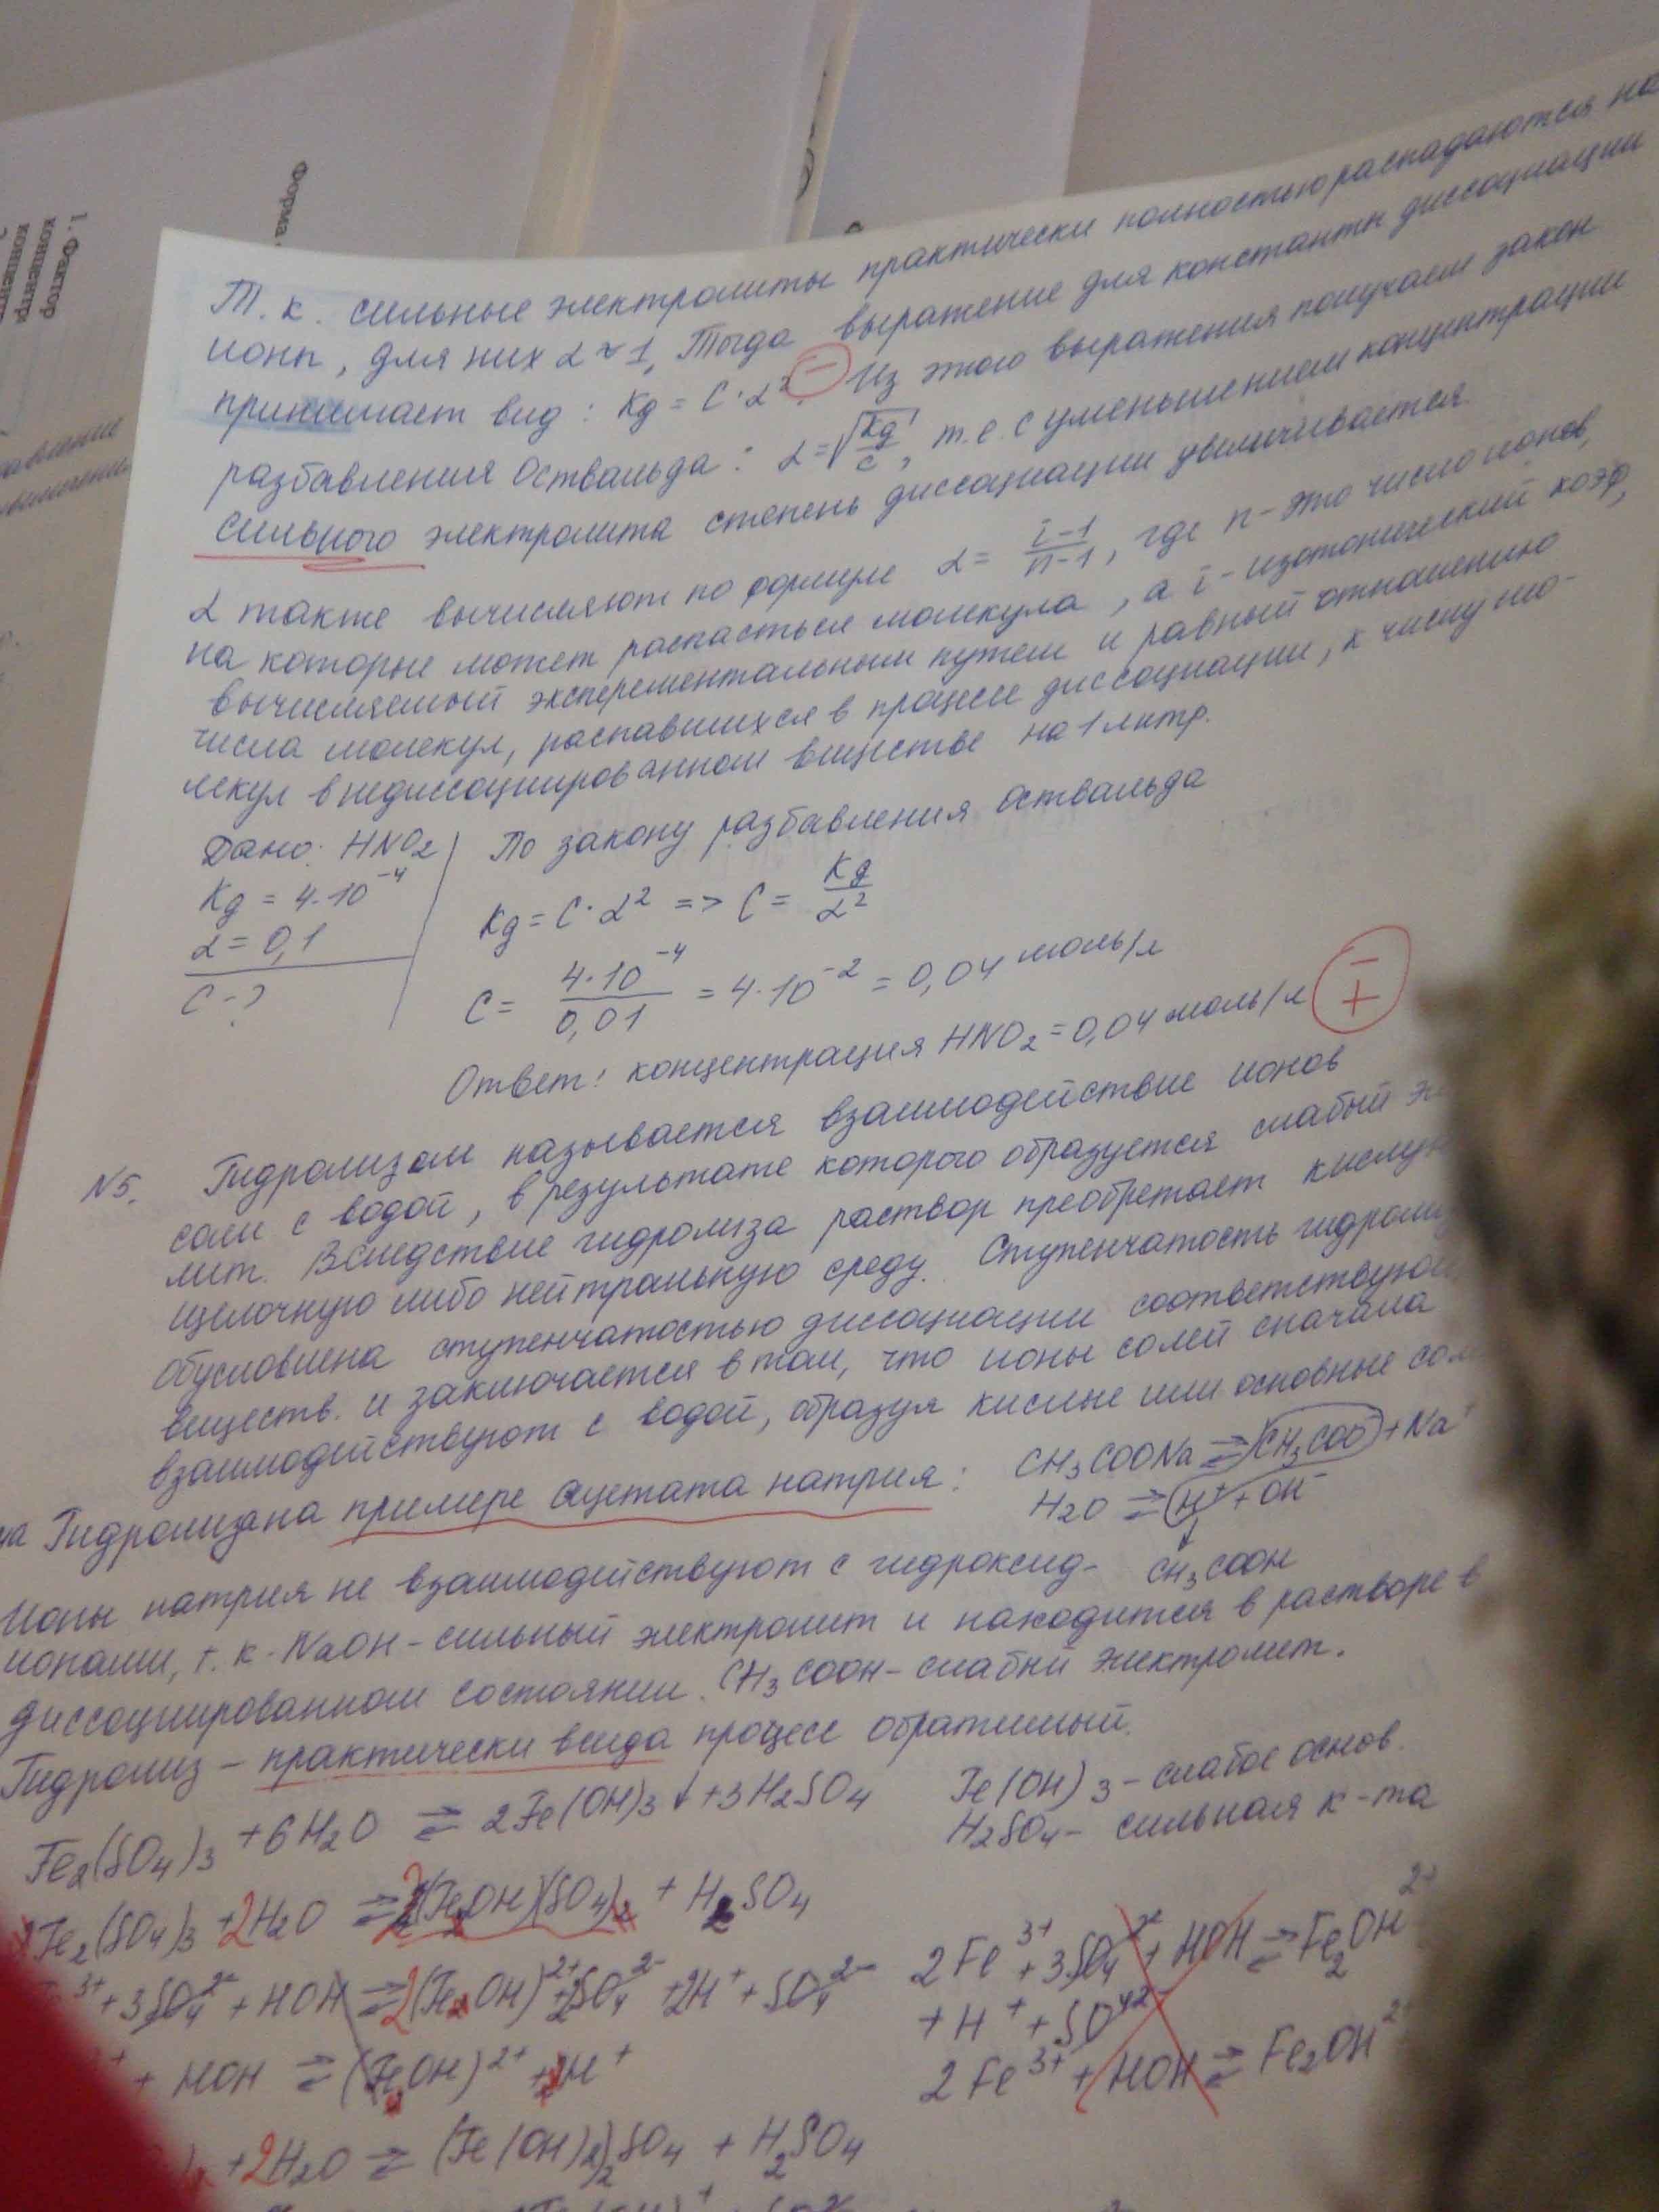 Форма
1. Фактор
Т.к. сильные электролиты практически полностью распадаются на
ионы, для них α ≈ 1, Тогда выражение для константы диссоциации
принимает вид: Kд = C·α². Из этого выражения получаем закон
разбавления Оствальда: α = √(Kд/c), т.е. с уменьшением концентрации
сильного электролита степень диссоциации увеличивается.
α также вычисляют по формуле α = (i-1)/(n-1), где n - это число ионов,
на которые может распасться молекула, а i - изотонический коэф,
вычисляемый эксперементальным путем и равный отношению
числа молекул, распавшихся в процессе диссоциации, к числу мо-
лекул в недиссоциированном веществе на 1 литр.
Дано: HNO₂
Kд = 4·10⁻⁴
α = 0,1
C - ?
По закону разбавления Оствальда
Kд = C·α² => C = Kд/α²
C = 4·10⁻⁴/0,01 = 4·10⁻² = 0,04 моль/л
Ответ: концентрация HNO₂ = 0,04 моль/л
−
+
N5. Гидролизом называется взаимодействие ионов
соли с водой, в результате которого образуется слабый
лит. Вследствие гидролиза раствор преобретает
щелочную либо нейтральную среду. Ступенчатость
обусловлена ступенчатостью диссоциации
веществ. и заключается в том, что ионы солей сначала
взаимодействуют с водой, образуя кислые или основные
Гидролиз на примере ацетата натрия: CH₃COONa ⇄ CH₃COO⁻ + Na⁺
H₂O ⇄ H⁺ + OH⁻
↓
CH₃COOH
Ионы натрия не взаимодействуют с гидроксид-
ионами, т.к. NaOH - сильный электролит и находится в растворе в
диссоциированном состоянии. CH₃COOH - слабый электролит.
Гидролиз - практически всегда процесс обратимый.
Fe₂(SO₄)₃ + 6H₂O ⇄ 2Fe(OH)₃↓ + 3H₂SO₄
Fe(OH)₃ - слабое основ.
H₂SO₄ - сильная к-та
Fe₂(SO₄)₃ + 2H₂O ⇄ 2(FeOH)(SO₄) + H₂SO₄
³⁺ + 3SO₄²⁻ + HOH ⇄ 2(FeOH)²⁺ + 2SO₄²⁻ + 2H⁺ + SO₄²⁻
+ HOH ⇄ (FeOH)²⁺ + H⁺
2Fe³⁺ + 3SO₄²⁻ + HOH ⇄ Fe₂OH
+ H⁺ + SO₄²⁻
2Fe³⁺ + HOH ⇄ Fe₂OH
+ 2H₂O ⇄ (Fe(OH)₂)₂SO₄ + H₂SO₄